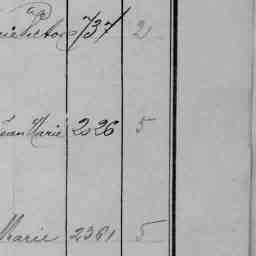 737 2
Jean Marie 2326 5
Marie 2361 5